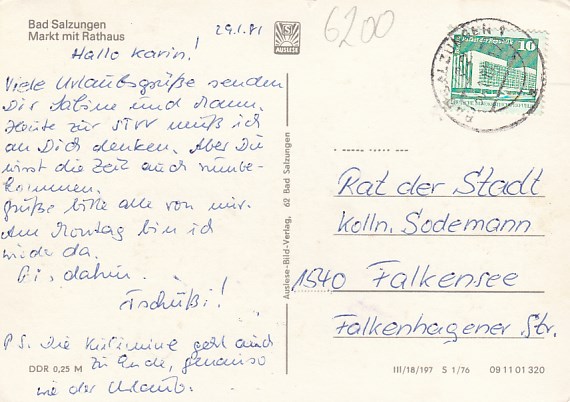 Bad Salzungen
Markt mit Rathaus
29.1.81
Hallo Karin!
Viele Urlaubsgrüße senden
Dir Sabine und Mann.
Heute zur STVV muß ich
an Dich denken. Aber Du
wirst die Zeit auch rumbe-
kommen.
Grüße bitte alle von mir.
Am Montag bin ich
wieder da.
Bis dahin
Tschüßi!
P.S. Die Kulimine geht auch
zu Ende, genauso
wie der Urlaub.
DDR 0,25 M
AUSLESE
Auslese-Bild-Verlag, 62 Bad Salzungen
6200
10
Rat der Stadt
Kolln. Sodemann
1540 Falkensee
Falkenhagener Str.
III/18/197 S 1/76 09 11 01 320